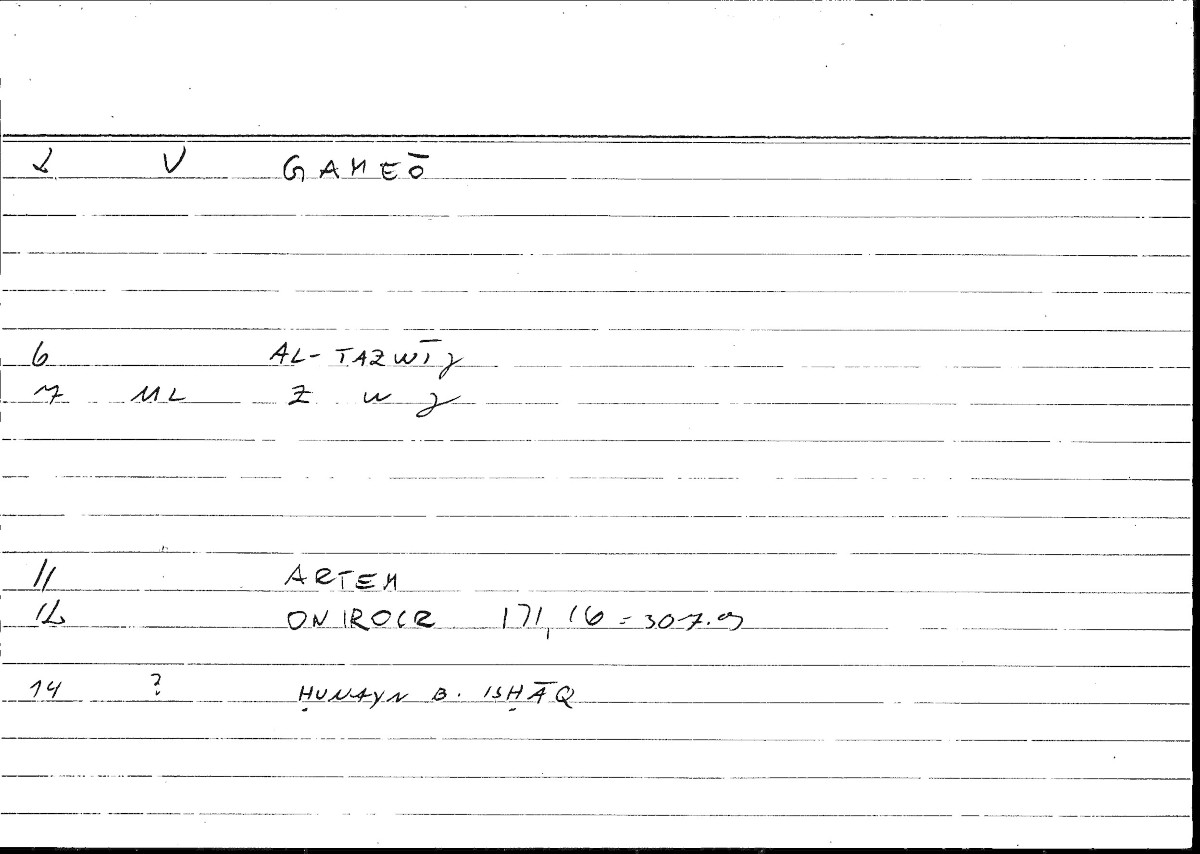 2 V GAMEŌ
6 AL-TAZWĪJ
7 ML Z W J
11 ARTEM
12 ONIROCR 171,16 = 307.9
14 ? ḤUNAYN B. ISḤĀQ